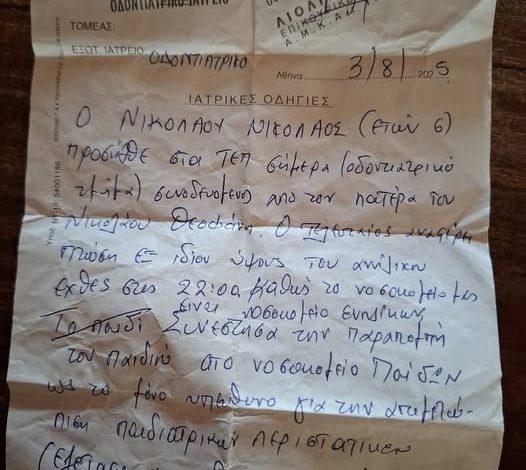 ΟΔΟΝΤΙΑΤΡΙΚΟ ΙΑΤΡΕΙΟ
ΤΟΜΕΑΣ:
ΕΞΩΤ. ΙΑΤΡΕΙΟ ΟΔΟΝΤΙΑΤΡΙΚΟ
Α.Μ.Κ.Α.
Αθήνα 3/8/2025
ΙΑΤΡΙΚΕΣ ΟΔΗΓΙΕΣ
Ο ΝΙΚΟΛΑΟΥ ΝΙΚΟΛΑΟΣ (ετών 6)
προσήλθε στα ΤΕΠ σήμερα (οδοντιατρικό
τμήμα) συνοδευόμενος από τον πατέρα του
Νικολάου Θεοφάνη. Ο τελευταίος αναφέρει
πτώση εξ ιδίου ύψους του ανηλίκου
εχθές στις 22:00. Καθώς το νοσοκομείο μας
είναι νοσοκομείο ενηλίκων
Το παιδί Συνέστησα την παραπομπή
του παιδιού στο νοσοκομείο Παίδων
ως το μόνο υπεύθυνο για την αντιμετώ-
πιση παιδιατρικών περιστατικών